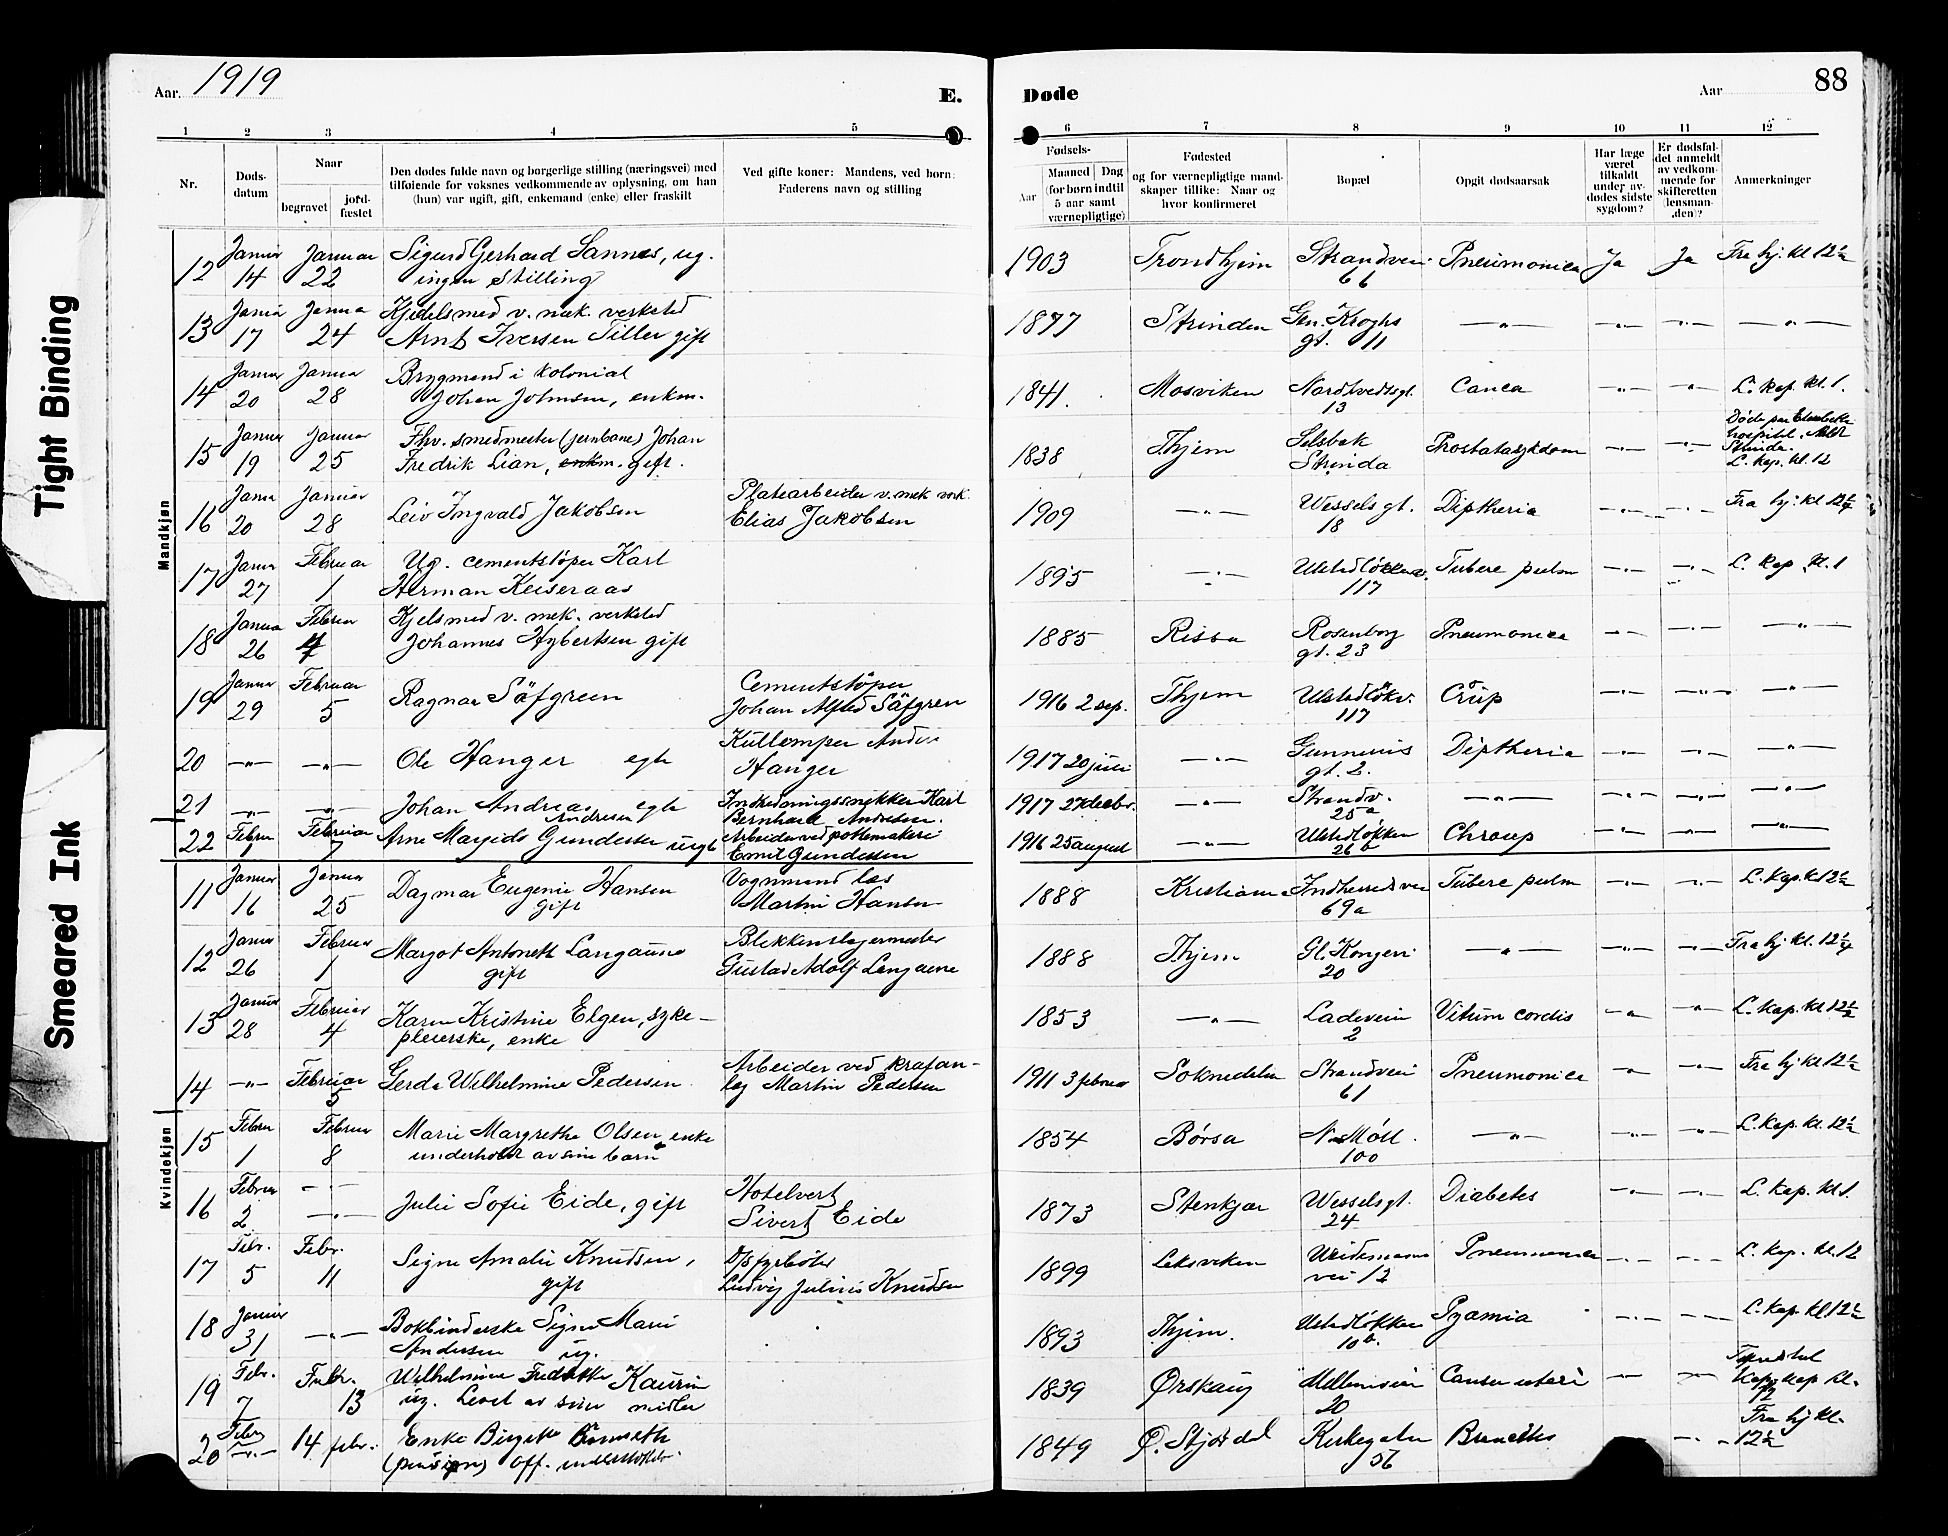 Tight Binding
Smeared Ink
Aar. 1919
E.
Døde
Aar
88
1 2 3 4 5 6 7 8 9 10 11 12
Nr.
Døds-
datum
Naar
begravet
jord-
fæstet
Den dødes fulde navn og borgerlige stilling (næringsvei) med
tilføiende for voksnes vedkommende av oplysning, om han
(hun) var ugift, gift, enkemand (enke) eller fraskilt
Ved gifte koner: Mandens, ved børn:
Faderens navn og stilling
Fødsels-
Aar
Maaned Dag
(for børn indtil
5 aar samt
værnepligtige)
Fødested
og for værnepligtige mand-
skaper tillike: Naar og
hvor konfirmeret
Bopæl
Opgit dødsaarsak
Har læge
været
tilkaldt
under av-
dødes sidste
sygdom?
Er dødsfal-
det anmeldt
av vedkom-
mende for
skifteretten
(lensman-
den)?
Anmerkninger
Mandkjøn
12 Januar 14 Januar 22 Sigurd Gerhard Sannes, ug.
ingen stilling
1903 Trondhjem Strandvei 66 Pneumonica Ja Ja Fra hj. kl 12½
13 Januar 17 Janua 24 Kjedelsmed v. mek. verksted
Arnt Iversen Tiller gift
1877 Strinden Gen. Kroghs gt. 11 —"— —"— —"— —"—
14 Januar 20 Januar 28 Brygmand i kolonial
Johan Johnsen, enkm.
1841. Mosviken Nordtvedtsgt. 13 Cancer —"— —"— L. kap. kl. 1.
15 Januar 19 Januar 25 Fhv. smedmester (jernbane) Johan
Fredrik Lian, enkm. gift.
1838 Thjem Selsbak Strinda Prostatasykdom —"— —"— Døde paa
hospital,
Strinda.
L. kap. kl. 12
16 Janur 20 Januar 28 Leiv Ingvald Jakobsen
Platearbeider v. mek verk.
Elias Jakobsen
1909 —"— Wessels gt. 18 Diptheria —"— —"— Fra hj. kl 12¼
17 Janur 27 Februar 1 Ug. cementstøper Karl
Herman Keiseraas
1895 —"— Ulstadløkkv. 117 Tuberc pulm —"— —"— L. kap. kl. 1
18 Janua 26 Februar 4 Kjelsmed v. mek. verksted
Johannes Hybertsen gift
1885 Rissa Rosenborg gt. 23 Pneumonica —"— —"— —"—
19 Januar 29 Februar 5 Ragnar Säfgreen
Cementstøper
Johan Alfred Säfgren
1916 2 sep. Thjem Ulstadløkv. 117 Crup —"— —"— —"—
20 —"— —"— Ole Hanger egte
Hanger
1917 20 juli —"— Gunnerus gt. 2. Diptheria —"— —"— —"—
21 —"— —"— Johan Andreas Andresen egte
Indredningssnekker Karl
Bernhard Andresen.
1917 27 decbr. —"— Strandv. 25a —"— —"— —"— —"—
22 Februar 1 Februar 7 Arne Margido Gundersen uegt
Arbeider ved pottemakeri
Emil Gundersen
1916 25 august —"— Ulstadløkken 26b Chroup —"— —"— —"—
Kvindekjøn
11 Januar 16 Januar 25 Dagmar Eugenie Hansen
gift
Vognmand læs
Martin Hansen
1888 Kristiania Indherredsvei 69a Tuberc pulm —"— —"— L. kap. kl 12½
12 Januar 26 Februar 1 Margot Antonette Langaune
gift
Blikkenslagermester
Gustad Adolf Langaune
1888 Thjem Gl. Kongevei 20 —"— —"— —"— Fra hj kl. 12¼
13 Januar 28 Februar 4 Karen Kristine Elgen, syke-
pleierske, enke
1853 —"— Ladeveien 2 Vitium cordis —"— —"— L. kap. kl 12½
14 —"— Februar 5 Gerda Wilhelmine Pedersen
Arbeider ved krafan-
læg Martin Pedersen
1911 3 februar Soknedalen Strandvei 61 Pneumonica —"— —"— Fra hj kl 12½
15 Februr 1 Februar 8 Marie Margrethe Olsen, enke
underholdt av sine barn
1854 Børsa N. Møll. 100 —"— —"— —"— L. kap. kl. 12½
16 Februar 2 —"— —"— Julie Sofie Eide, gift
Hotelvert
Sivert Eide
1873 Stenkjær Wesselsgt. 24 Diabetes —"— —"— L. kap. kl 1.
17 Febr. 5 Febr. 11 Signe Amalie Knudsen,
gift
Ludvig Julius Knudsen
1899 Leksviken Weidemanns vei 12 Pneumonica —"— —"— L. kap. kl. 12
18 Januar 31 —"— Bokbinderske Signe Marie
Andersen ug.
1893 Thjem. Ulstadløkken 10b. Pyæmia —"— —"— L. kap. kl 12½
19 Febr. 7 Febr. 13 Wilhelmine Fredrikke Kaurin
ug. Levet av sine midler
1839 Ørskaug Mellemveien 20 Cancer uteri —"— —"— kap kl.
20 Febr —"— 14 febr. Enke Birgitte
(pension) off. understøttelse
1849 Ø. Stjørdal Kirkegaten 56 —"— Fra hj kl.
12½